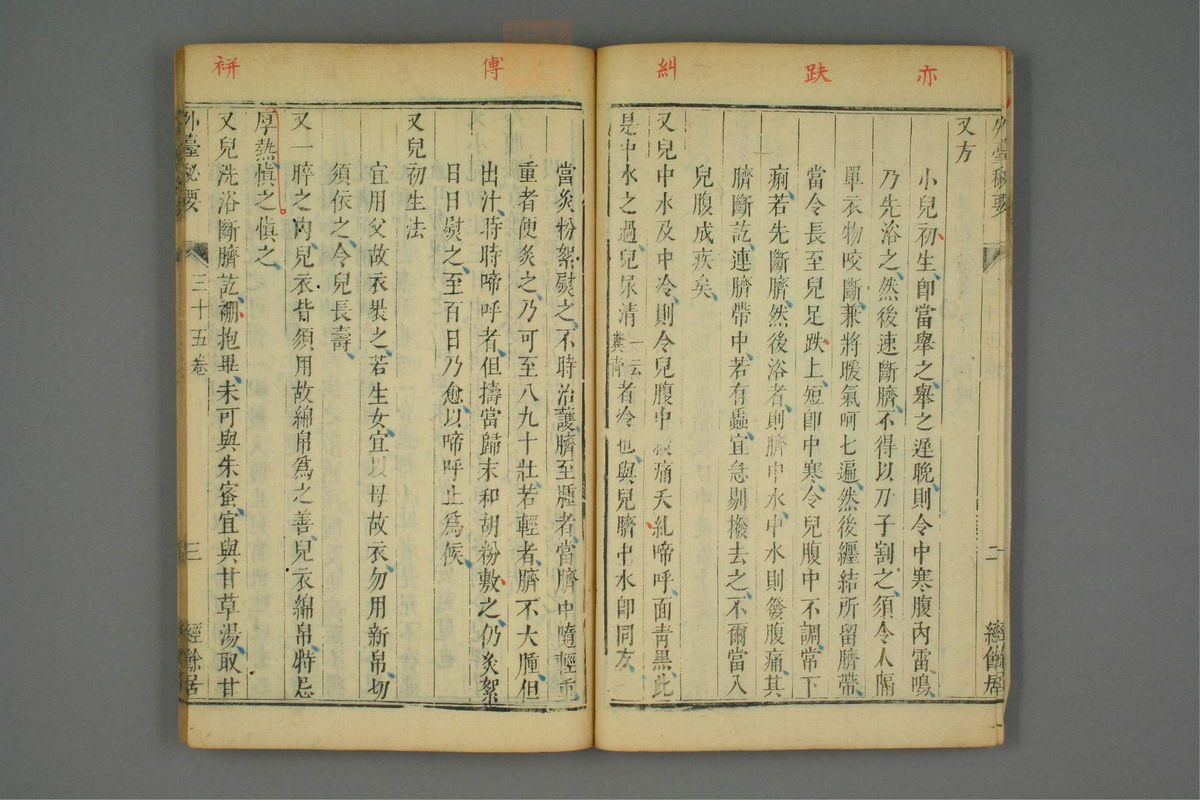 亦
趺
糾
外臺秘要
二
經餘居
又方
小兒初生卽當舉之舉之遲晚則令中寒腹內雷鳴
乃先浴之然後速斷臍不得以刀子割之須令人隔
單衣物咬斷兼將暖氣呵七遍然後纏結所留臍帶
當令長至兒足趺上短卽中寒令兒腹中不調常下
痢若先斷臍然後浴者則臍中水中水則發腹痛其
臍斷訖連臍帶中若有蟲宜急剔撥去之不爾當入
兒腹成疾矣
又兒中水及中冷則令兒腹中痛夭糺啼呼面靑黑此
是中水之過兒尿清一云糞靑者冷也與兒臍中水卽同方
傅
裲
當炙粉絮熨之不時治護臍至腫者當臍中隨輕重
重者便炙之乃可至八九十壯若輕者臍不大腫但
出汁時時啼呼者但擣當歸末和胡粉敷之仍炙絮
日日熨之至百日乃愈以啼呼止爲候
又兒初生法
宜用父故衣裂之若生女宜以母故衣勿用新帛切
須依之令兒長壽
又一晬之內兒衣皆須用故綿帛爲之善兒衣綿帛特忌
厚熱愼之愼之
又兒洗浴斷臍訖襉抱畢未可與朱蜜宜與甘草湯取甘
外臺秘要
三十五卷
三
經餘居